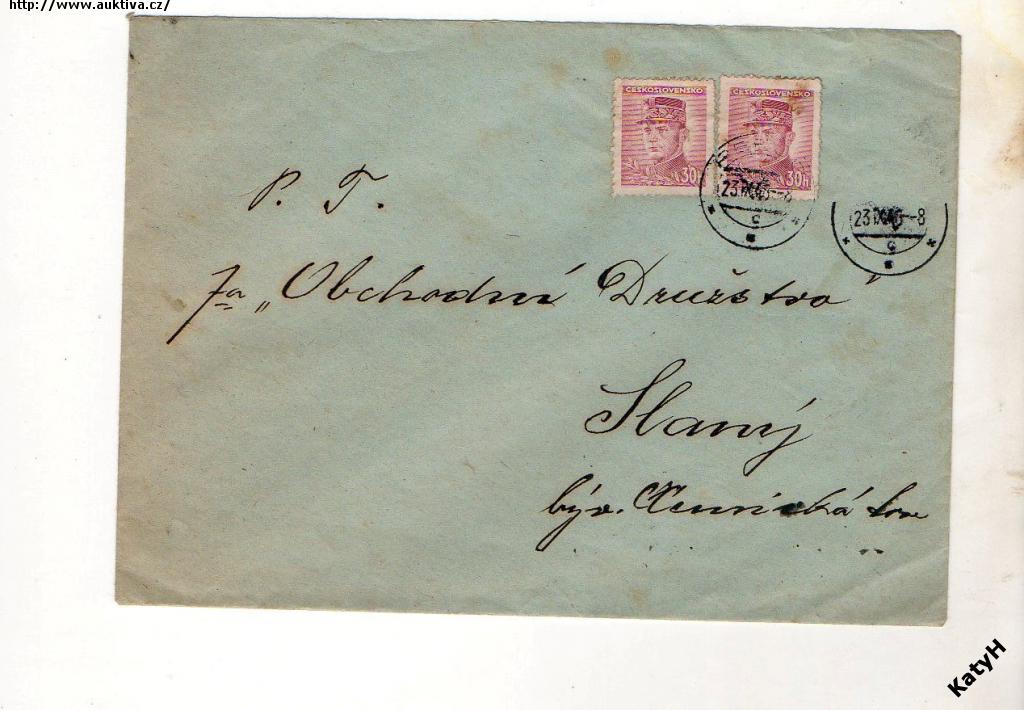 http://www.auktiva.cz/
ČESKOSLOVENSKO ČESKOSLOVENSKO
30h 30h
23 IX 46 -8
P. T.
Fa „Obchodní Družstvo"
Slaný
býv. továr
KatyH